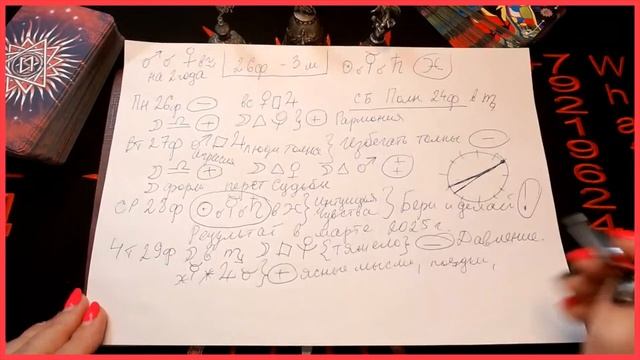 ♂☌♀ в ♒ 26ф - 3м ☉☌☿☌♄ ♓
на 2 года
СБ Полн 24ф в ♍
Пн 26ф ⊖ вс ♀□♃
☽ ♎ ⊕ ☽△♀ } ⊕ Гармония
Вт 27ф ♂□♃ люди толпы } избегать толпы ⊖
агрессия
☽ ♎ ⊕ ☽△♀ ☽△♂
☽ форм перст Судьбы
СР 28ф ☉☌☿☌♄ в ♓ } интуиция чувства } Бери и делай !
Результат в марте 2025 г.
Чт 29ф ☽ в ♏ ☽□♀ {Тяжело} ⊖ Давление.
☿ * ♃ } ⊕ ясные мысли, поездки,
Wha
79219624